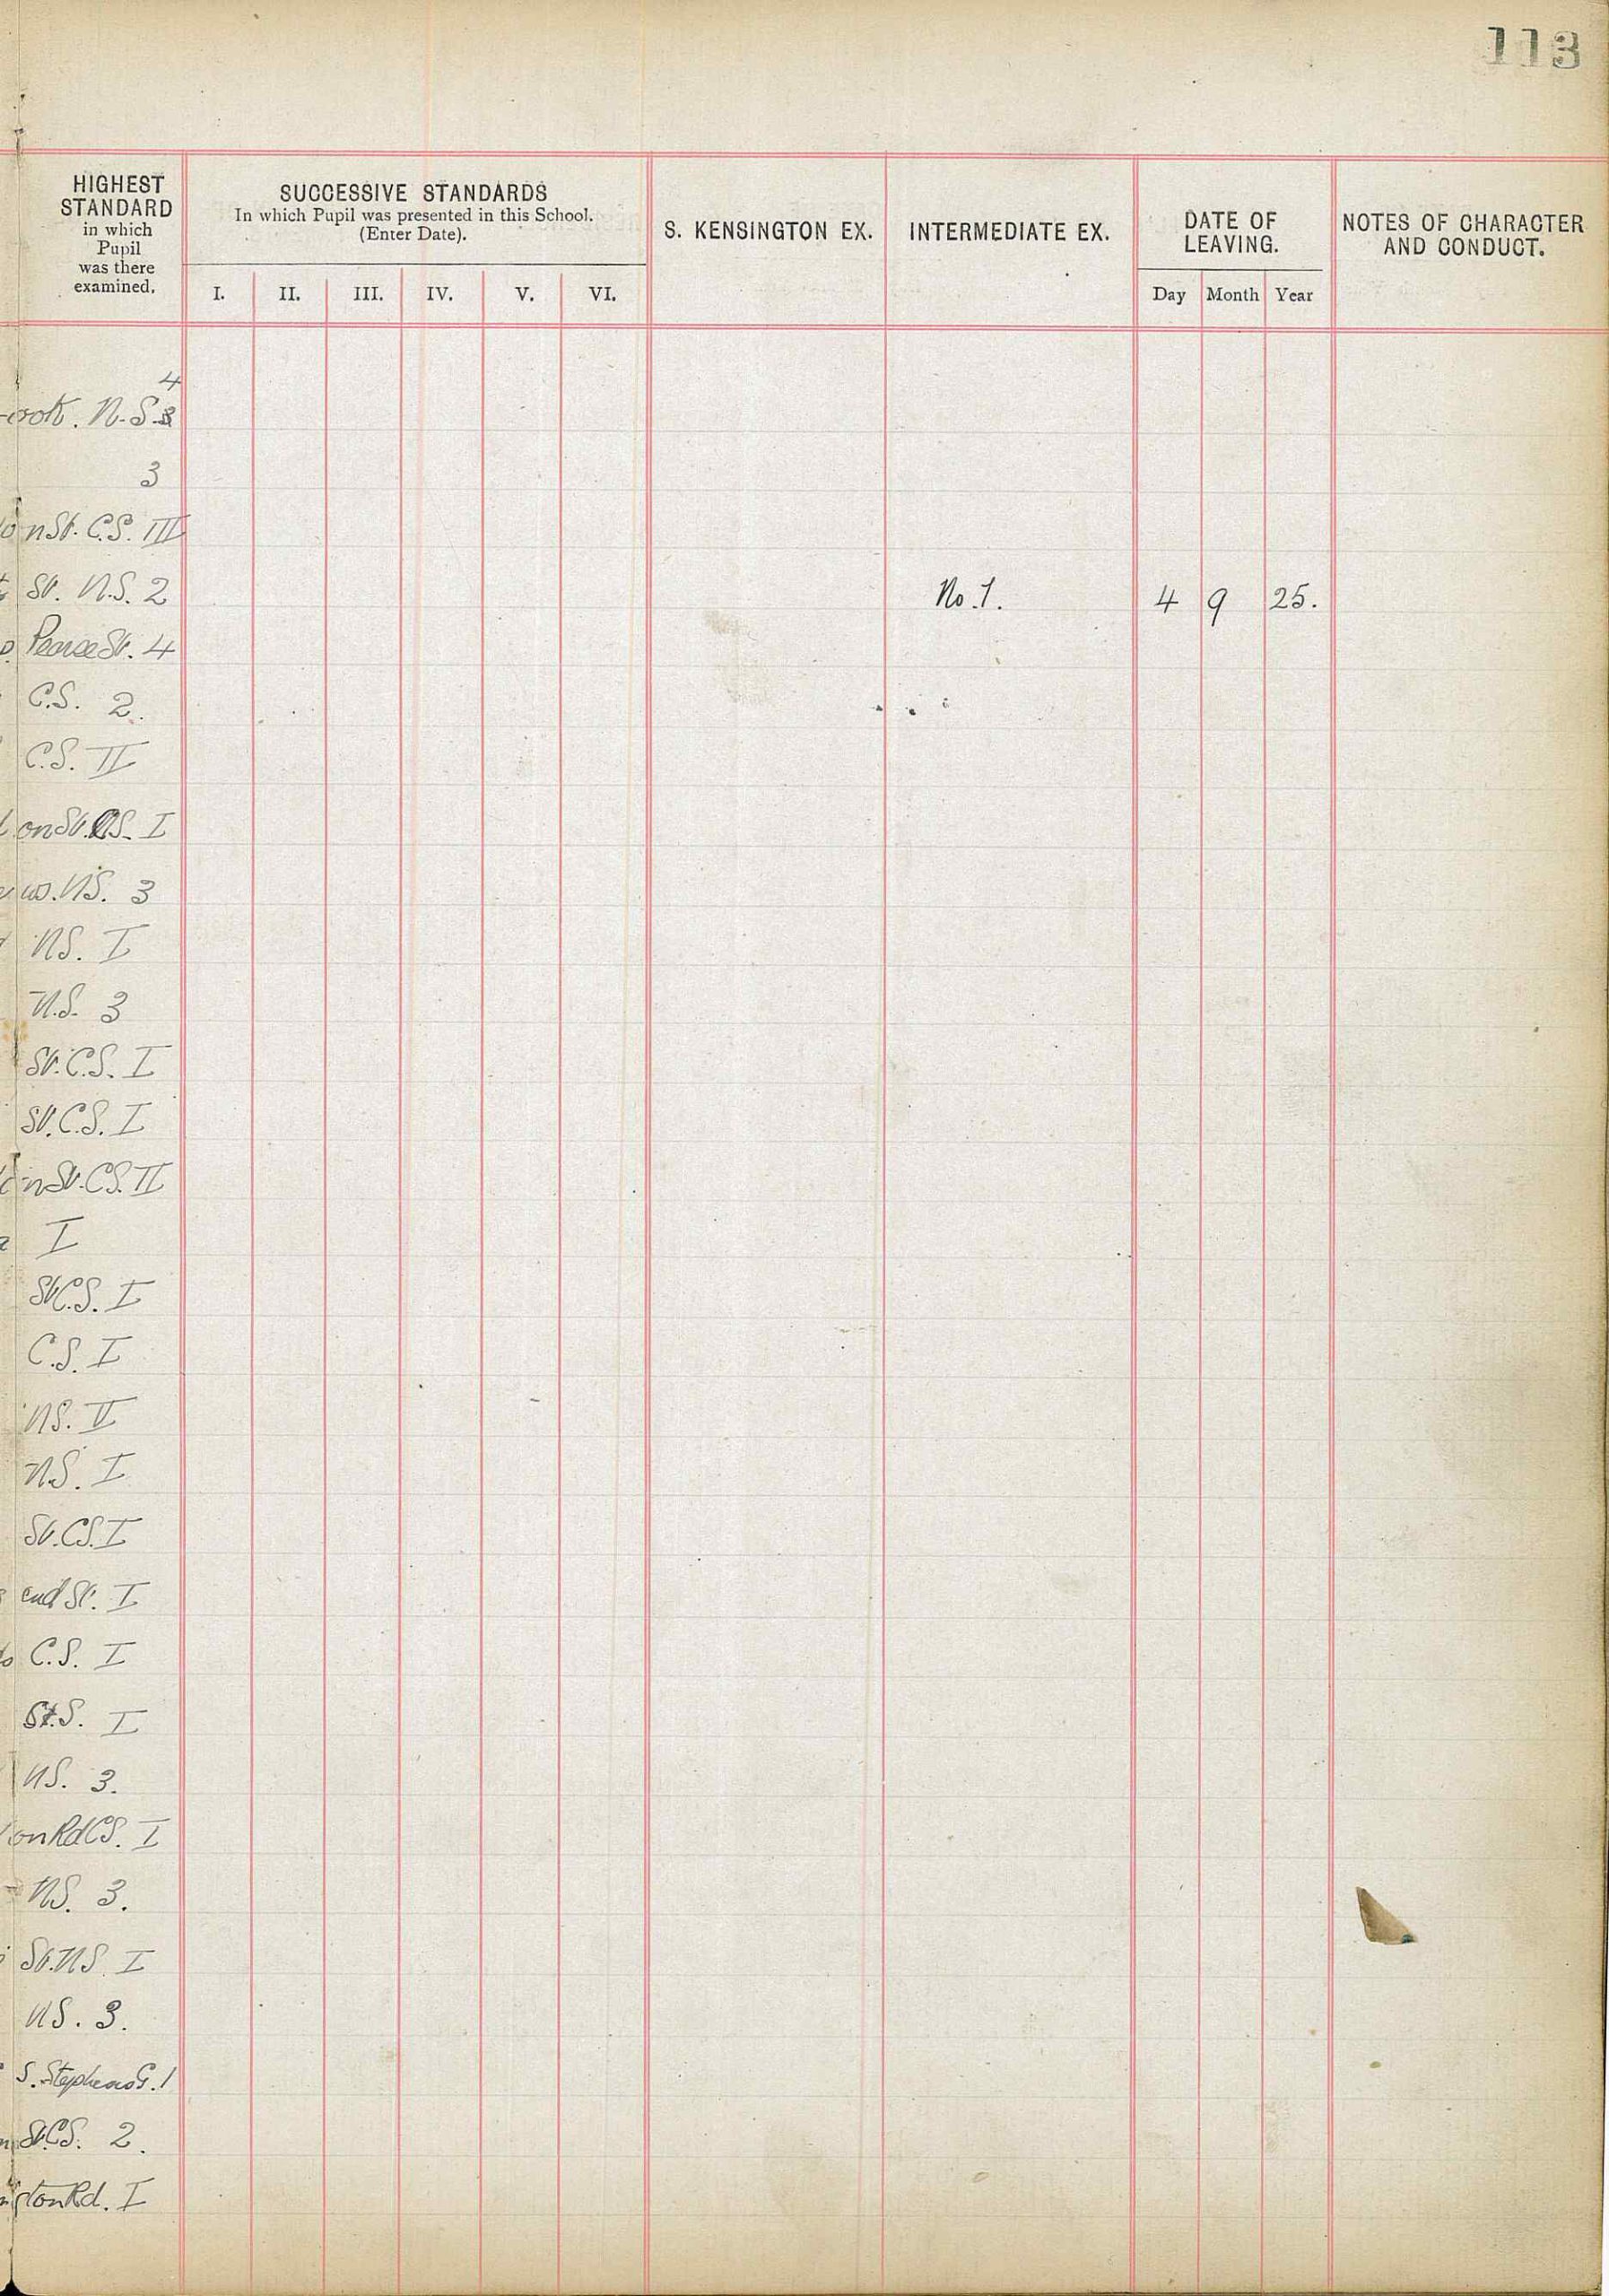 113
HIGHEST STANDARD in which Pupil was there examined.
SUCCESSIVE STANDARDS
In which Pupil was presented in this School.
(Enter Date).
I. II. III. IV. V. VI.
S. KENSINGTON EX.
INTERMEDIATE EX.
DATE OF LEAVING.
Day Month Year
NOTES OF CHARACTER AND CONDUCT.
4
ook. N.S. 3
3
on St. C.S. III
St. N.S. 2 No. 1. 4 9 25.
Pearse St. 4
C.S. 2.
C.S. II
on St. C.S. I
w. N.S. 3
N.S. I
N.S. 3
St. C.S. I
St. C.S. I
n St. C.S. II
I
St C.S. I
C.S. I
N.S. II
N.S. I
St. C.S. I
end St. I
C.S. I
St. S. I
N.S. 3.
on Rd C.S. I
N.S. 3.
St. N.S. I
N.S. 3.
S. Stephens G. 1
St. C.S. 2.
gton Rd. I